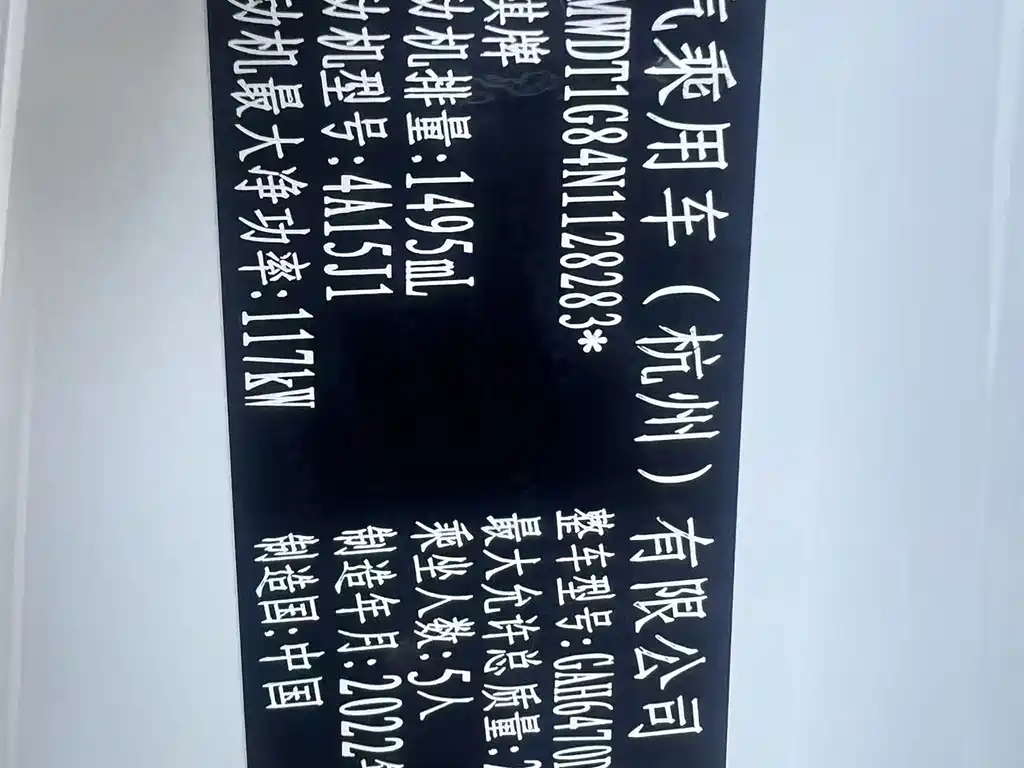 汽乘用车（杭州）有限公司
WWDT1G84N1128283*
整车型号:GAH6470
祺牌
最大允许总质量:
动机排量:1495mL
乘坐人数:5人
动机型号:4A15J1
制造年月:2022年
动机最大净功率:117kW
制造国:中国